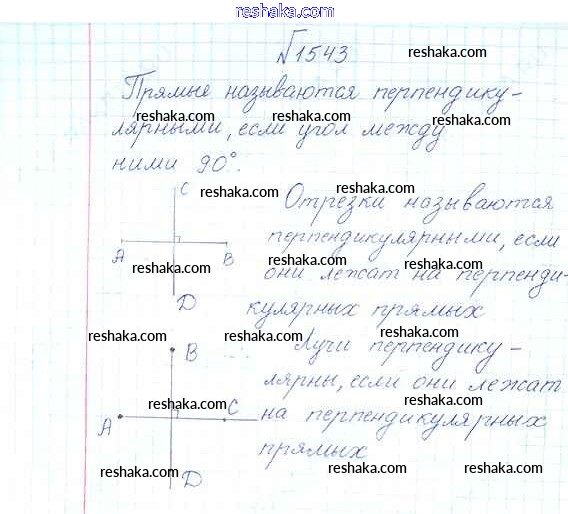 www.reshaka.com
№1543
reshaka.com
Прямые называются перпендику-
reshaka.com reshaka.com reshaka.com
лярными, если угол между
ними 90°.
reshaka.com reshaka.com
C
reshaka.com
Отрезки называются
перпендикулярными, если
A B
reshaka.com reshaka.com reshaka.com
они лежат на перпенди-
D
кулярных прямых
reshaka.com reshaka.com reshaka.com
B
Лучи перпендику-
лярны, если они лежат
reshaka.com reshaka.com
A C
на перпендикулярных
прямых
reshaka.com reshaka.com reshaka.com
D